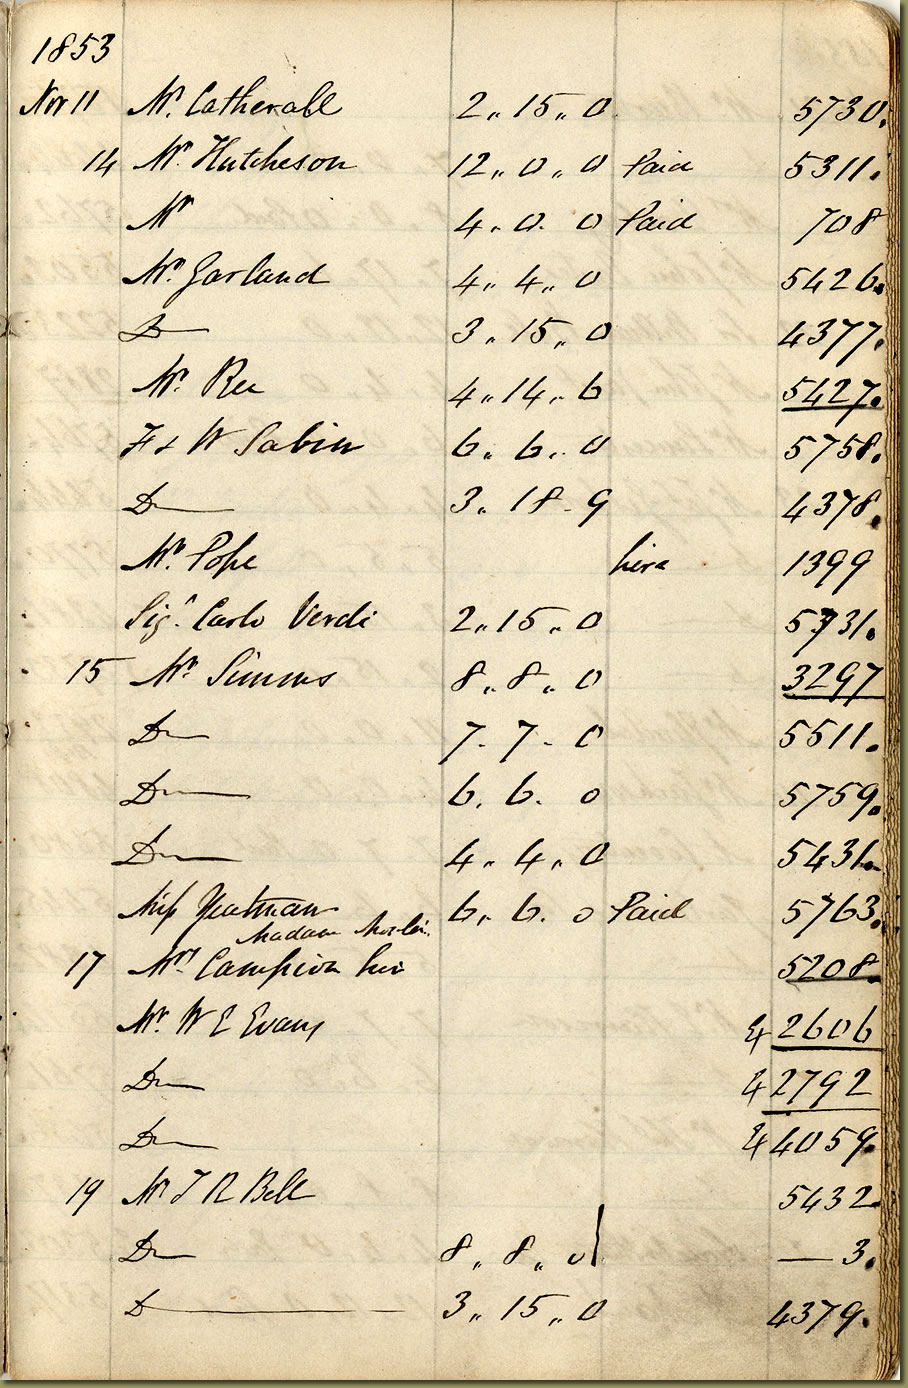 1853
Nov 11 Mr. Catherall 2 " 15 " 0 5730.
14 Mr. Hutcheson 12 " 0 " 0 Paid 5311.
Mr 4 " 0 . 0 Paid 708
Mr. Garland 4 " 4 " 0 5426.
Do 3 " 15 " 0 4377.
Mr. Ree 4 " 14 " 6 5427.
F & W Sabin 6 " 6 " 0 5758.
Do 3 " 18 - 9 4378.
Mr. Pope hire 1399
Sigr. Carlo Verdi 2 " 15 " 0 5731.
15 Mr. Simms 8 " 8 " 0 3297
Do 7 - 7 - 0 5511.
Do 6 . 6 . 0 5759.
Do 4 " 4 " 0 5431.
Miss Yeatman 6 " 6 . 0 Paid 5763.
Madame
17 Campion hire 5208.
Mr. W E Evans 2606
Do 2792
Do 4059.
19 Mr. J R Bell 5432
Do 8 " 8 " 0 — 3.
Do 3 " 15 " 0 4379.